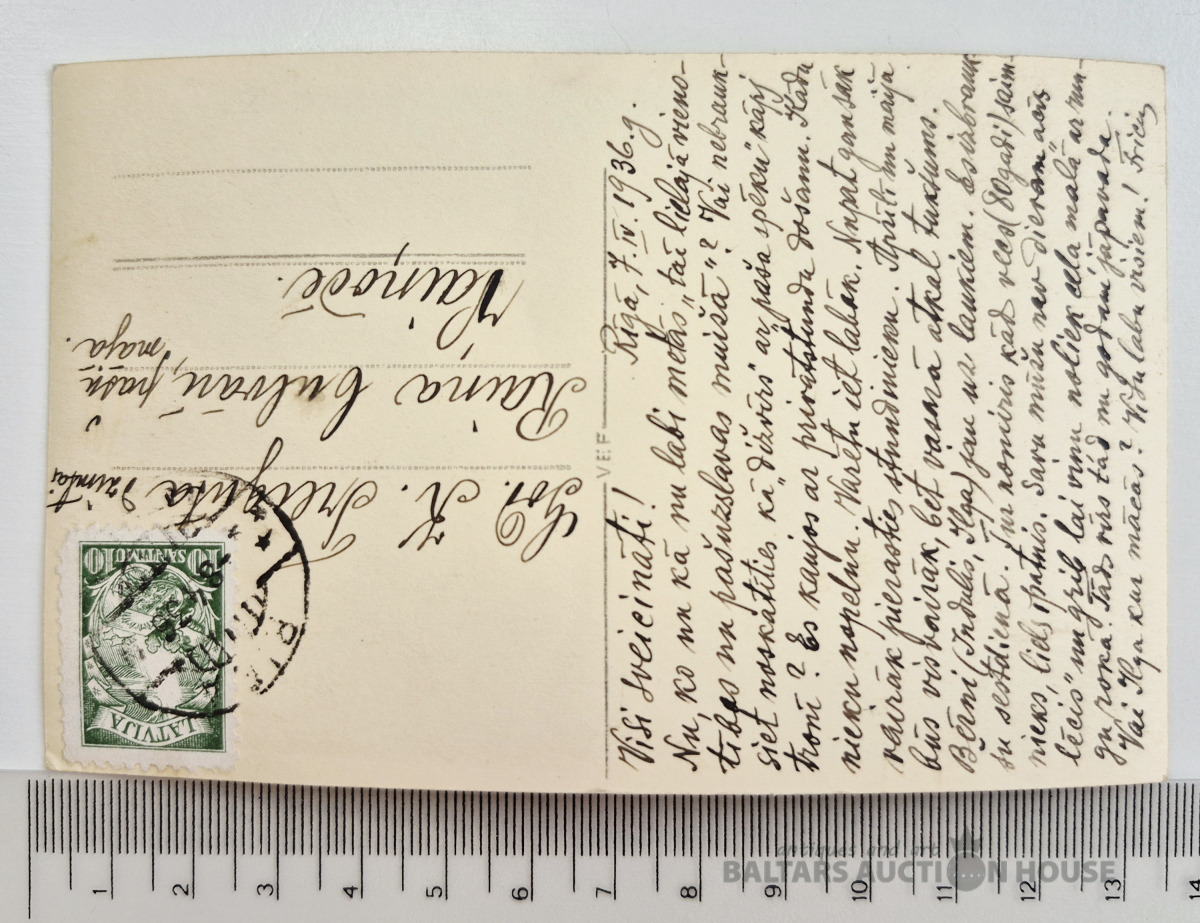 Rīgā, 7. IV. 1936. g.
Visi sveicināti!
Nu, ko un kā nu labi metās „tai lielajā vieno-
tības un pašuzslavas muišā"? Vai nebrauk-
siet noskatīties kā „dižvīrs" ar paša spēku kāpj
tronī? Es kaujos ar privātstundu došanu. Kādu
nieku nopelnu. Varētu iet labāk. Nupat gan sāk
vairāk pierasties stundinieku. Aprīlī un maijā
būs visvairāk, bet vasarā atkal tukšums.
Bērni (Indulis, Ilga) jau uz laukiem. Es izbraukšu
sestdienā. Tur nomiris kāds vecs (80 gadi) saim-
nieks, liels īpatnis. Savu mūžu nav dievam acīs
lēcis" un grib lai viņu noliek ceļa malā" ar run-
gu rokā. Tāds vīrs tād nu godam jāpavada.
Vai Ilga kur mācās? Visu labu visiem! Fricis
God. K. Freiberga dzimtai
Raiņa bulvārī, pašu
mājā.
Vaiņodē.
VEF
LATVIJA
10 SANTIMU 10
RĪGA
1 2 3 4 5 6 7 8 9 10 11 12 13 14
antiques and art
BALTARS AUCTION HOUSE